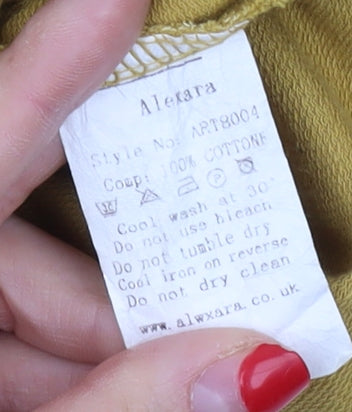 Alexara
Style No: ART8004
Comp: 100% COTTONE
Cool wash at 30°
Do not use bleach
Do not tumble dry
Cool iron on reverse
Do not dry clean
www.alwxara.co.uk